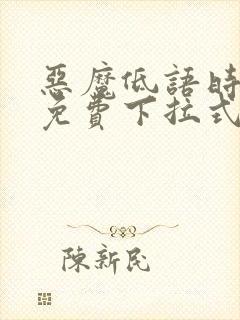 惡魔低語時
免費下拉式
陳新民